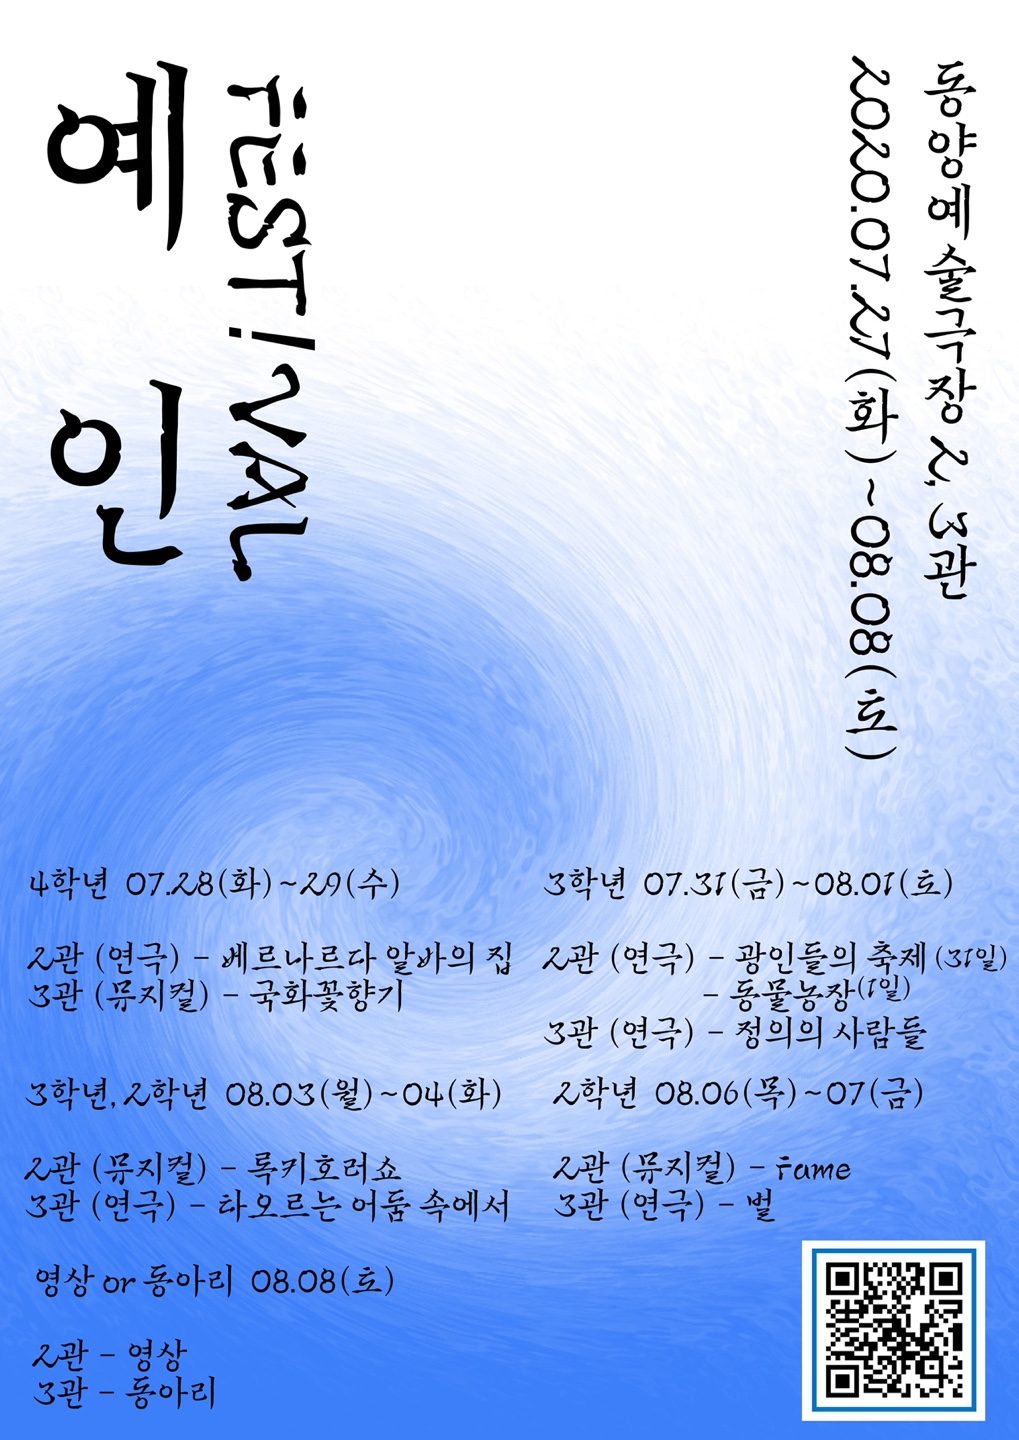 예인
FESTIVAL
동양예술극장 2, 3관
2020.07.27(화)~08.08(토)
4학년 07.28(화)~29(수)
2관 (연극) - 베르나르다 알바의 집
3관 (뮤지컬) - 국화꽃향기
3학년 07.31(금)~08.01(토)
2관 (연극) - 광인들의 축제 (31일)
- 동물농장(1일)
3관 (연극) - 정의의 사람들
3학년, 2학년 08.03(월)~04(화)
2관 (뮤지컬) - 록키호러쇼
3관 (연극) - 타오르는 어둠 속에서
2학년 08.06(목)~07(금)
2관 (뮤지컬) - fame
3관 (연극) - 벌
영상 or 동아리 08.08(토)
2관 - 영상
3관 - 동아리